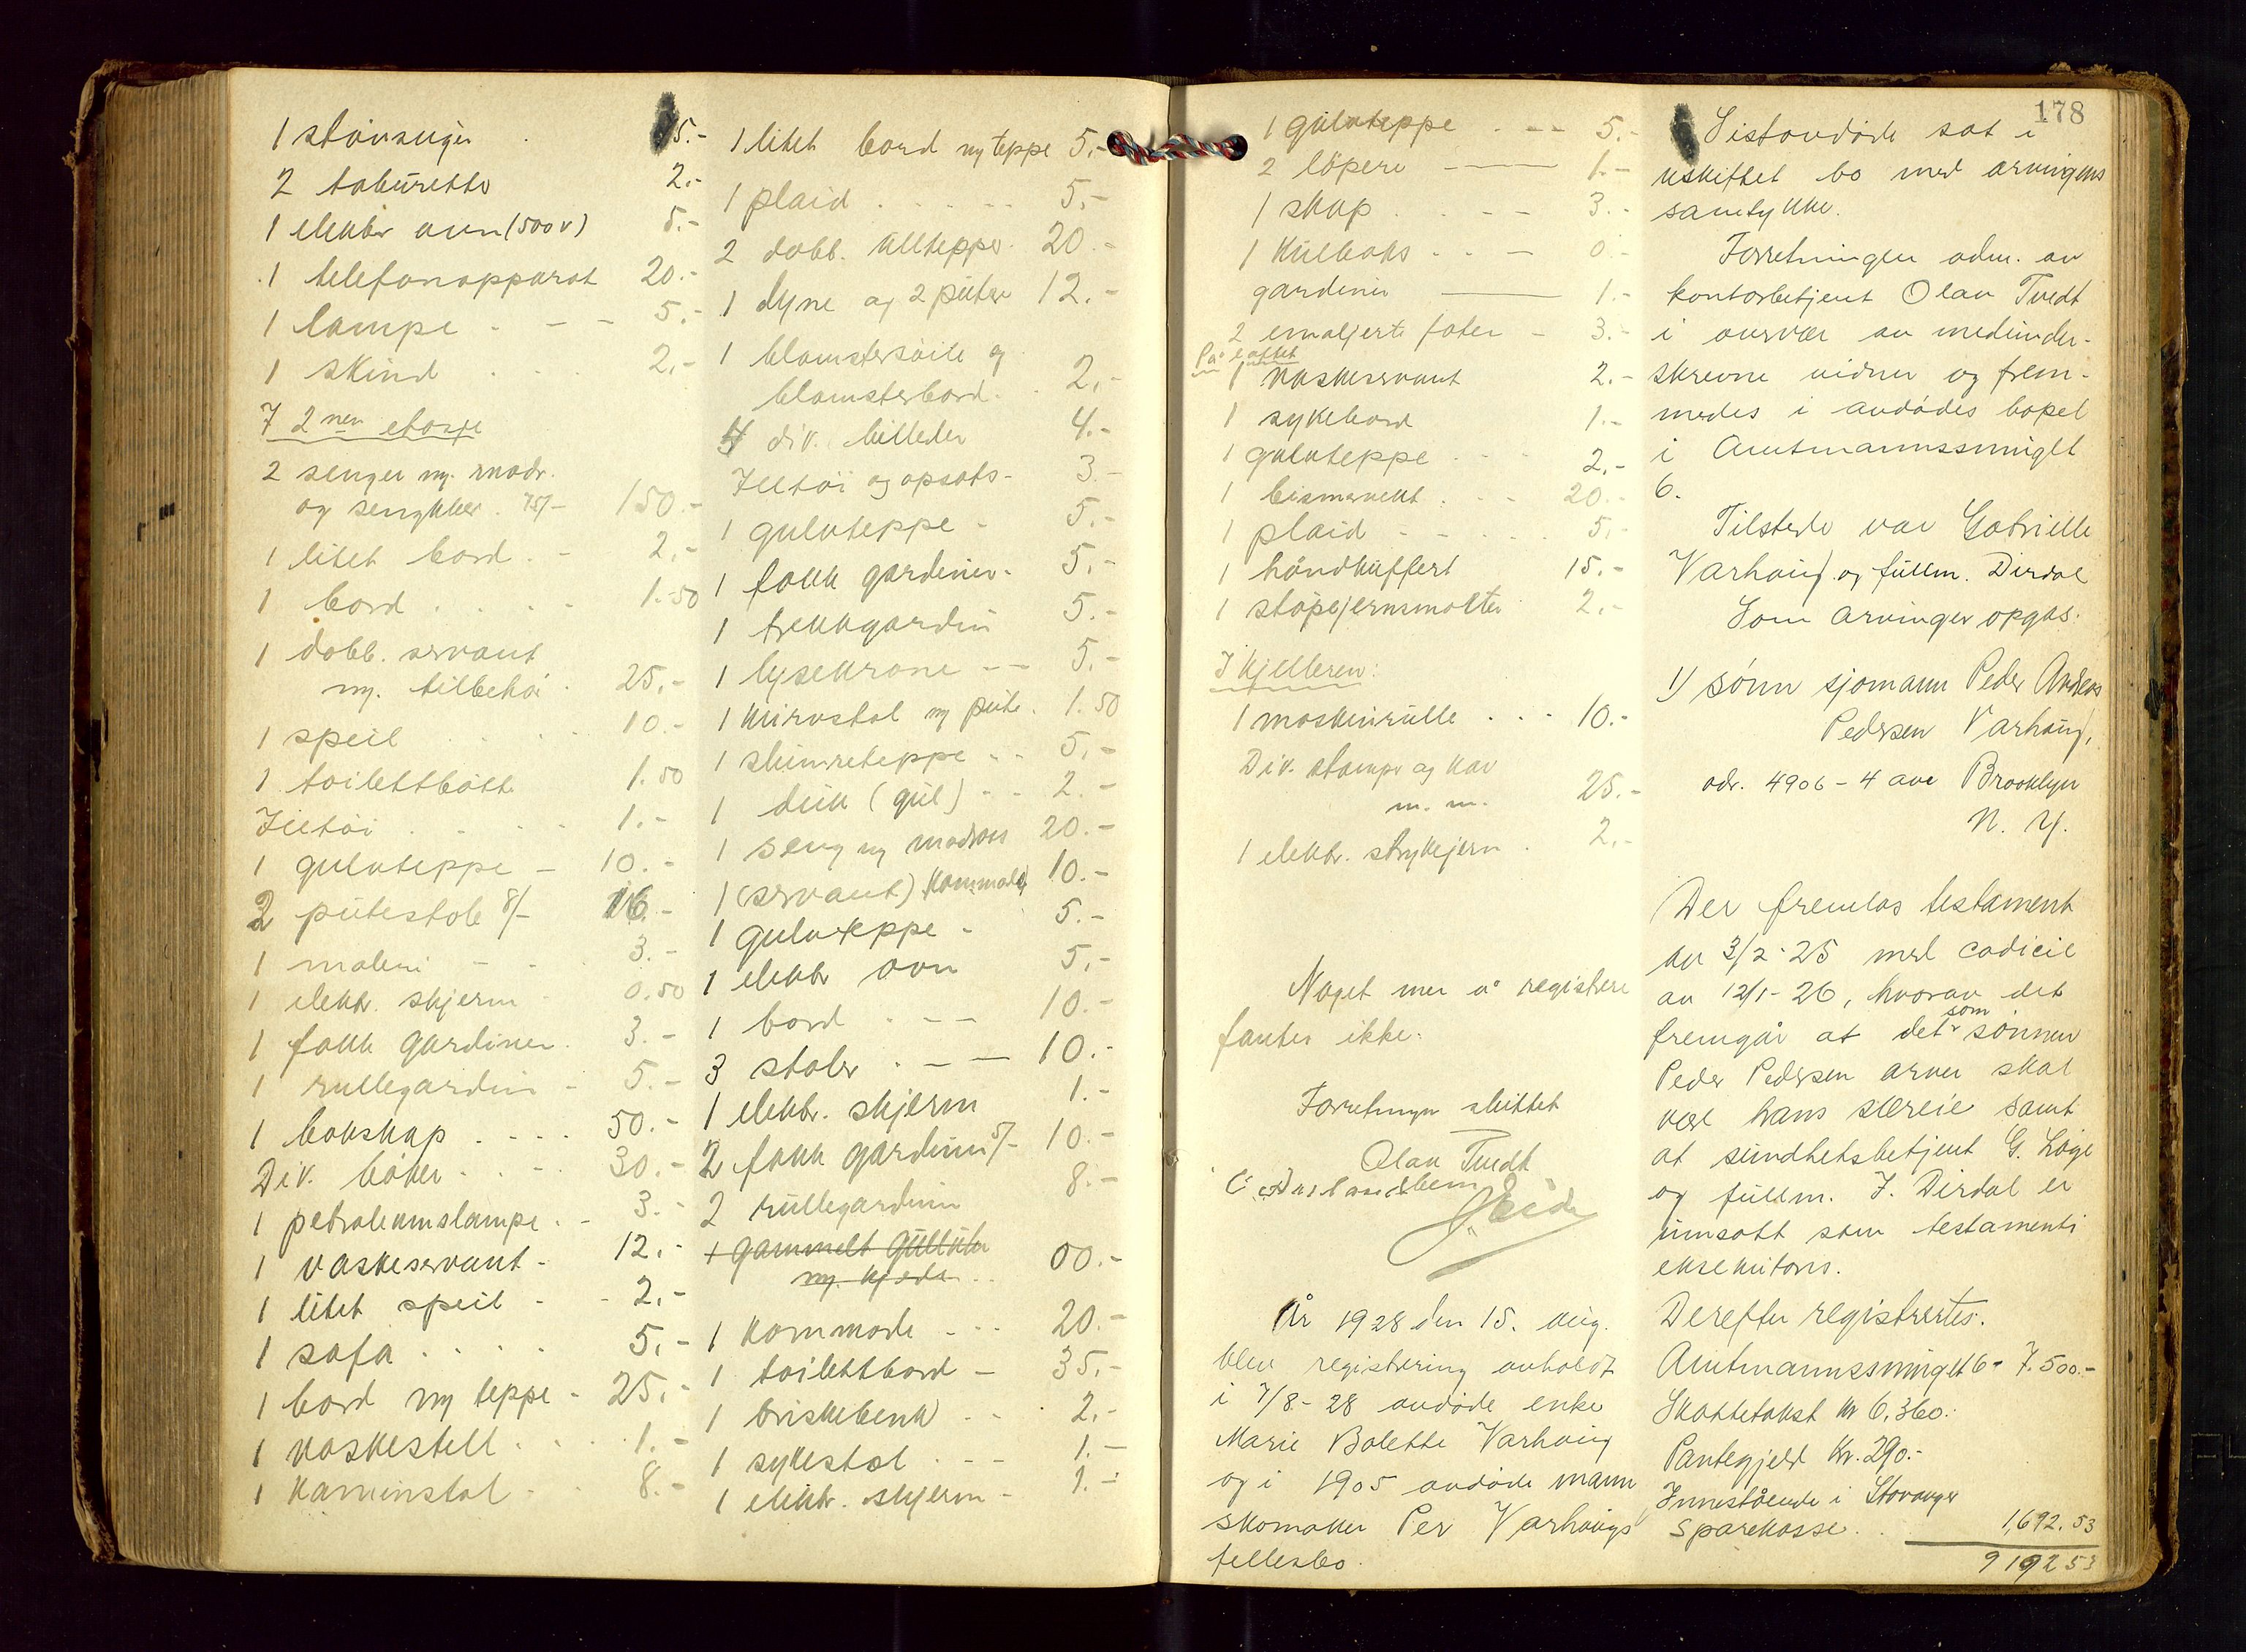 1 støvsuger . 5.-
2 taburetter 2.-
1 elektr ovn (500 v) 5.-
1 telefonapparat 20.-
1 lampe . - - 5.-
1 skind . . . 2,-
I 2nen etasje
2 senger m. madr.
og sengklær . 75/- 150.-
1 litet bord . - 2,-
1 bord . . . . 1.50
1 dobb. servant
m. tilbehør . 25,-
1 speil . . . . 10.-
1 toilettbøtte 1.50
Filttøi . . . . 1.-
1 gulvteppe - 10.-
2 putestole 8/- 16.-
1 maleri - - 3.-
1 elektr. skjerm - 0.50
1 fakk gardiner . 3.-
1 rullegardin - 5.-
1 bokskap . . . . 50.-
Div. bøker . . - - 30.-
1 petroleumslampe . - 3.-
1 vaskeservant - 12.-
1 litet speil - - 2,-
1 sofa . . . . 5,-
1 bord m teppe - 25,-
1 vaskestell . . . . 1.-
1 kaminstol - . 8.-
1 litet bord m teppe 5,-
1 plaid . . . . . 5,-
2 dobb. ulltepper . 20.-
1 dyne og 2 puter 12.-
1 blomstersøile og
blomsterbord . . 2,-
4 div. billeder 4.-
Filttøi og opsats - 3.-
1 gulvteppe - 5.-
1 fakk gardiner - 5.-
1 trekkgardin 5.-
1 lysekrone - - 5,-
1 kurvstol m pute . 1.50
1 skinnreteppe - - 5,-
1 duk (gul) - - 2.-
1 seng m madrass 20.-
1 (servant) kommode 10.-
1 gulvteppe - 5.-
1 elektr ovn 5,-
1 bord . - - 10.-
3 stoler . - - 10.-
1 elektr. skjerm 1.-
2 fakk gardiner 5/- 10.-
2 rullegardiner 8.-
1 gammelt gullur
m. kjede . . 00.-
1 kommode . . . 20.-
1 toilettbord - 35.-
1 briskebenk . . . 2,-
1 sykestol . - - 1.-
1 elektr. skjerm - 1.-
1 gulvteppe . - - 5.-
2 løpere - - 1.-
1 skap . . - - 3.-
1 kulboks . . - 0.-
gardiner - 1.-
2 emaljerte fater - 3.-
På loftet
1 vaskeservant 2.-
1 sykebord 1.-
1 gulvteppe . . . 2,-
1 bismervekt . . - 20.-
1 plaid - - . . . 5,-
1 håndkuffert 15.-
1 støpejernsmolter 2.-
I kjelleren:
1 maskinrulle . . - 10.-
Div. stamper og kar
m. m. 25.-
1 elektr. strykejern . 2,-
Noget mer å registrere
fantes ikke.
Forretningen sluttet
Olav Tvedt
178
År 1928 den 15. aug.
blev registrering avholdt
i 7/8-28 avdøde enke
Marie Bolette Varhaug
og i 1905 avdøde mann
skomaker Per Varhaugs
fellesbo.
Sistavdøde sat i
uskiftet bo med arvingens
samtykke.
Forretningen adm. av
kontorbetjent Olav Tvedt
i overvær av medunder-
skrevne vidner og frem-
medes i avdødes bopel
i Amtmannssmuget
6.
Tilstede var Gabrielle
Varhaug og fullm. Dirdal
Som arvinger opgas:
1) sønn sjømann Peder Andreas
Pedersen Varhaug,
adr. 4906 - 4 ave Brooklyn
N. Y.
Der fremlas testament
av 3/2-25 med codicil
av 12/1-26, hvorav det
fremgår at det som sønnen
Peder Pedersen arver skal
være hans særeie samt
at sundhetsbetjent G. Løge
og fullm. J. Dirdal er
innsatt som testaments
eksekutors.
Derefter registrertes:
Amtmannssmuget 6 - 7.500.-
Skattetakst kr 6,360.-
Pantegjeld kr. 290.-
Innestående i Stavanger
Sparekasse . . 1,692.53
9 192 53